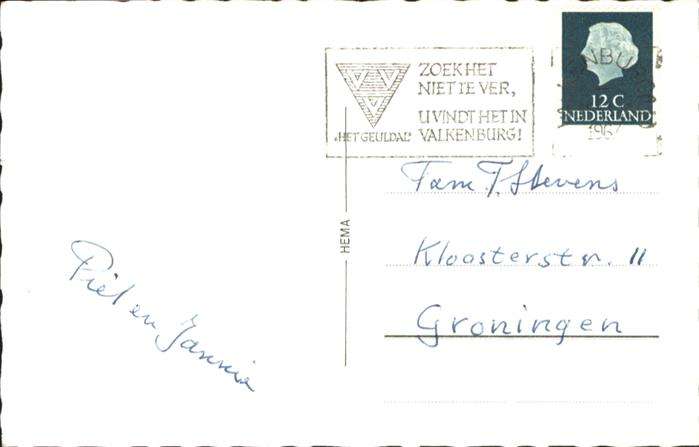 ZOEK HET
NIET TE VER,
U VINDT HET IN
„HET GEULDAL" VALKENBURG!
12 C
NEDERLAND
HEMA
Fam T. Stevens
Kloosterstr. 11
Groningen
Piet en Jannie